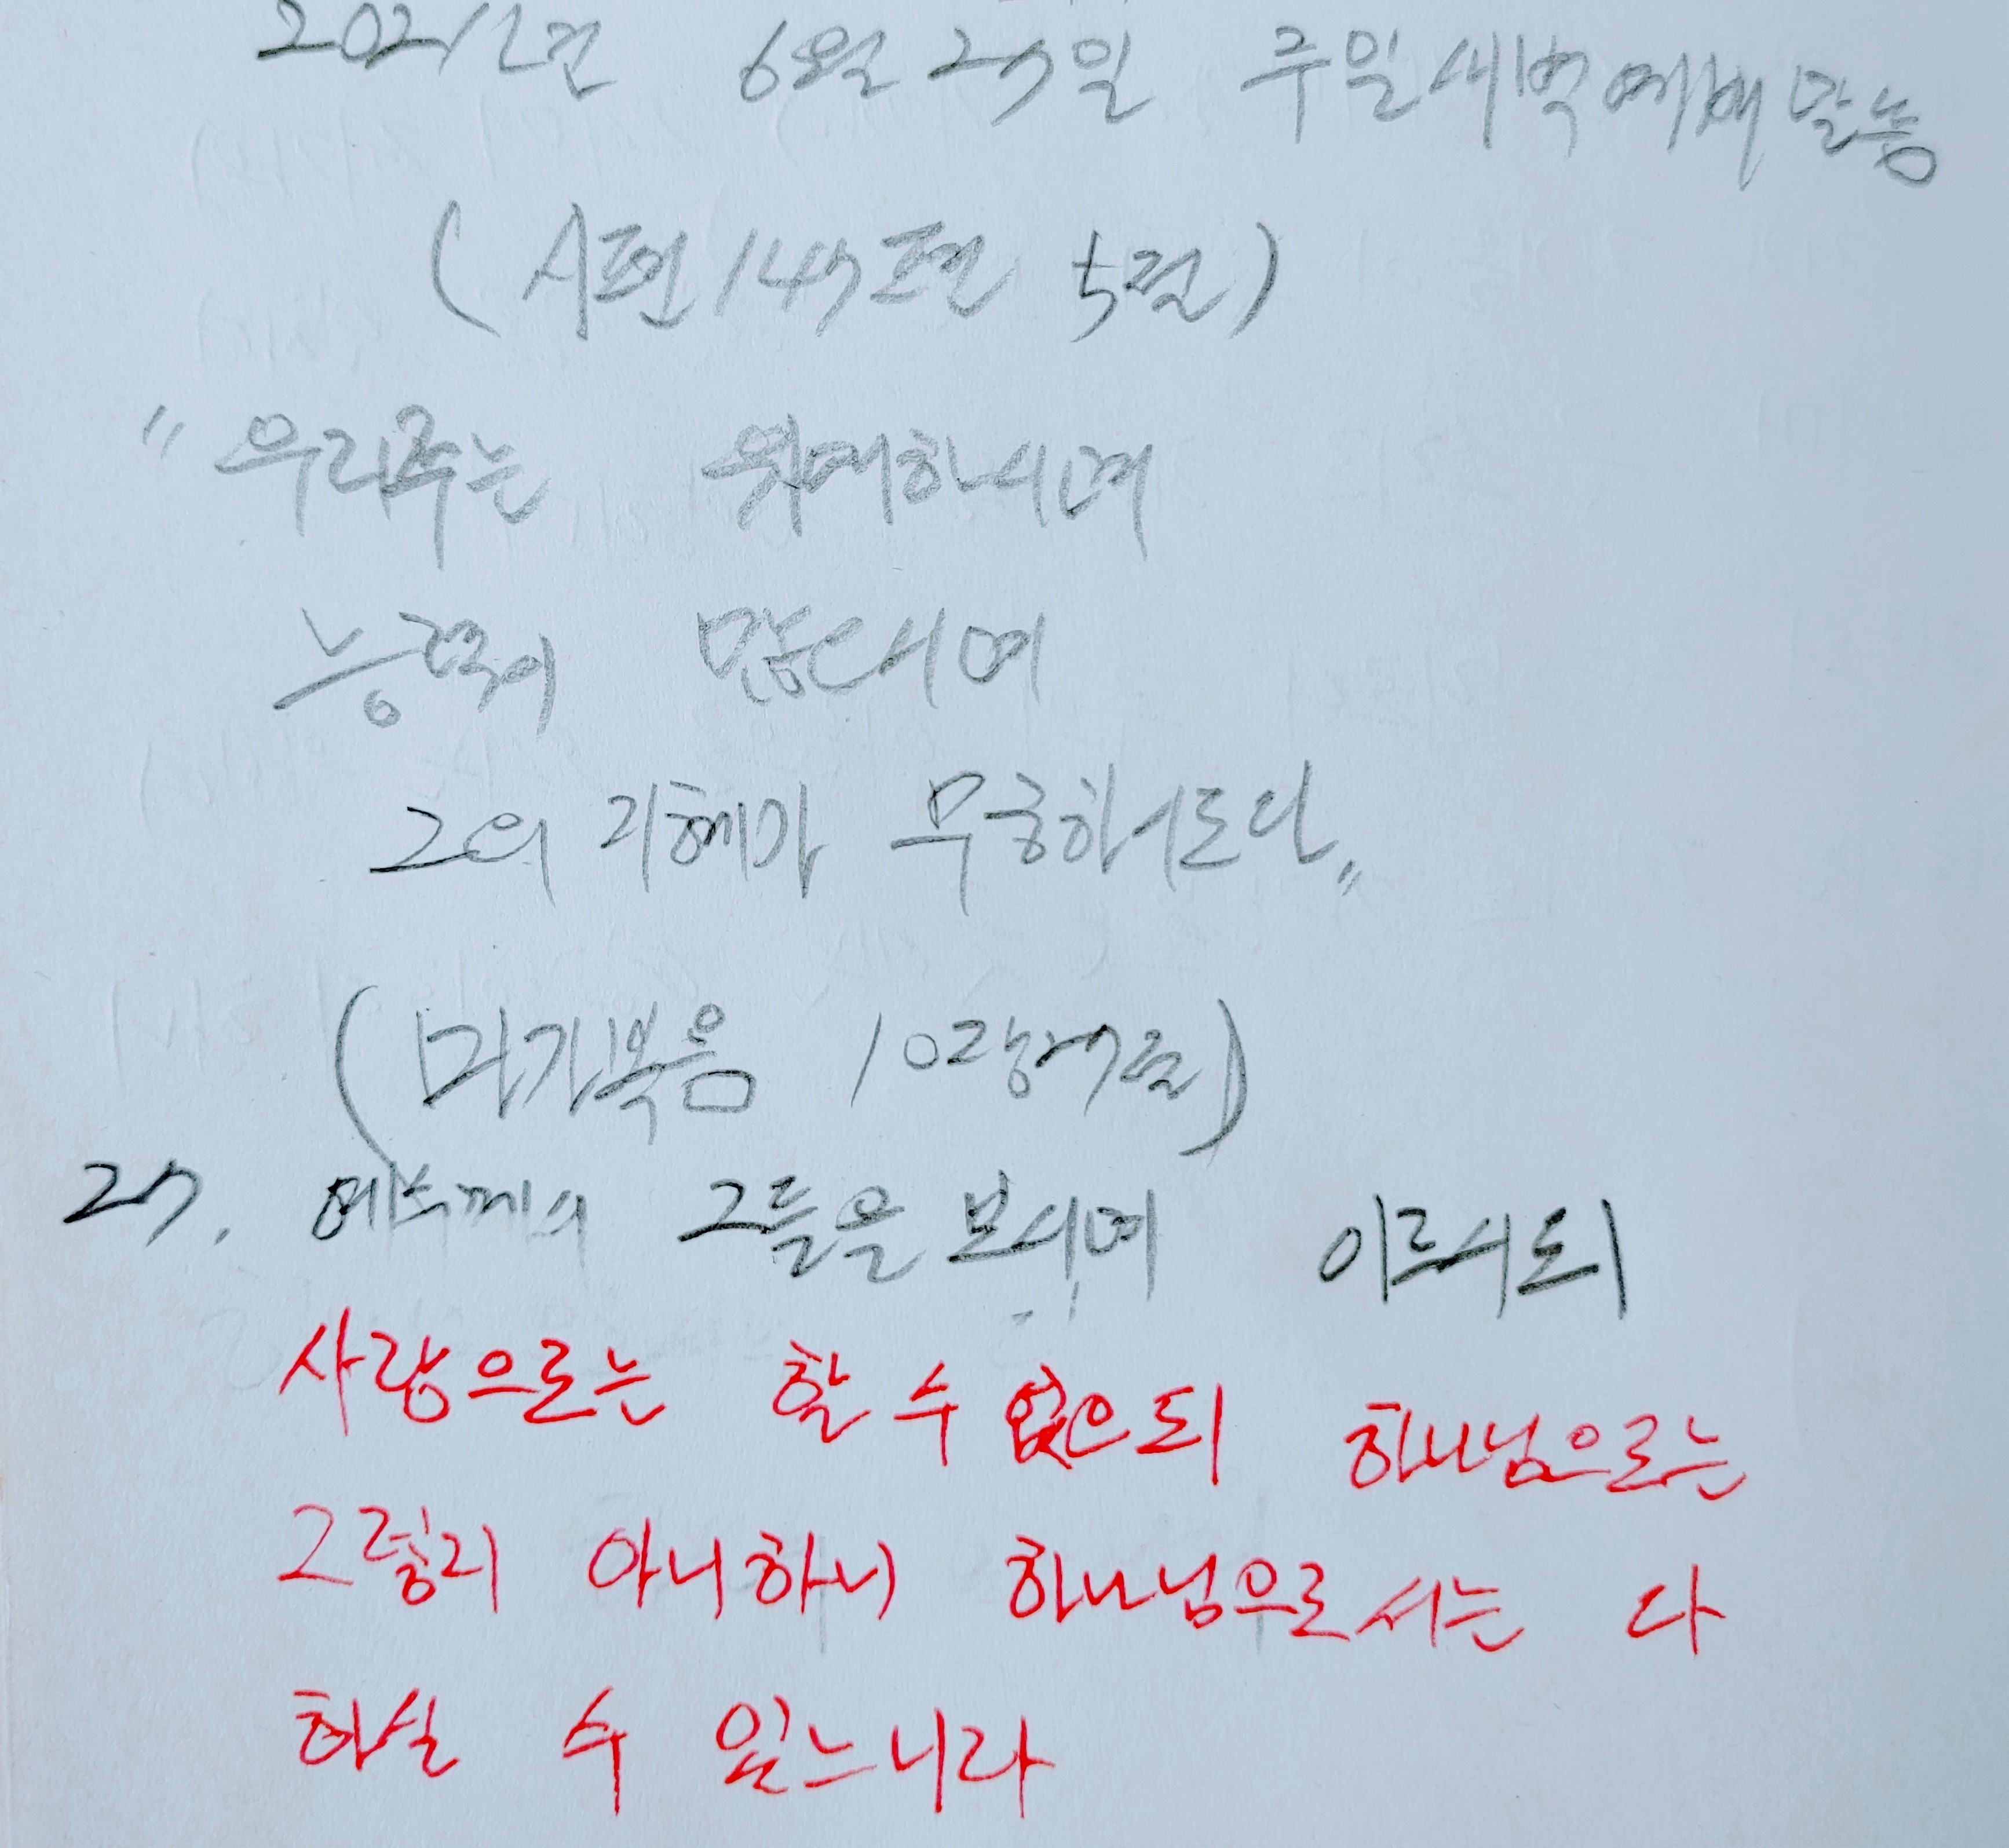 2021년 6월 27일 주일새벽예배 말씀
(시편 147편 5절)
"우리주는 위대하시며
능력이 많으시며
그의 지혜가 무궁하시도다"
(마가복음 10장 27절)
27. 예수께서 그들을 보시며 이르시되
사람으로는 할 수 없으되 하나님으로는
그렇지 아니하니 하나님으로서는 다
하실 수 있느니라